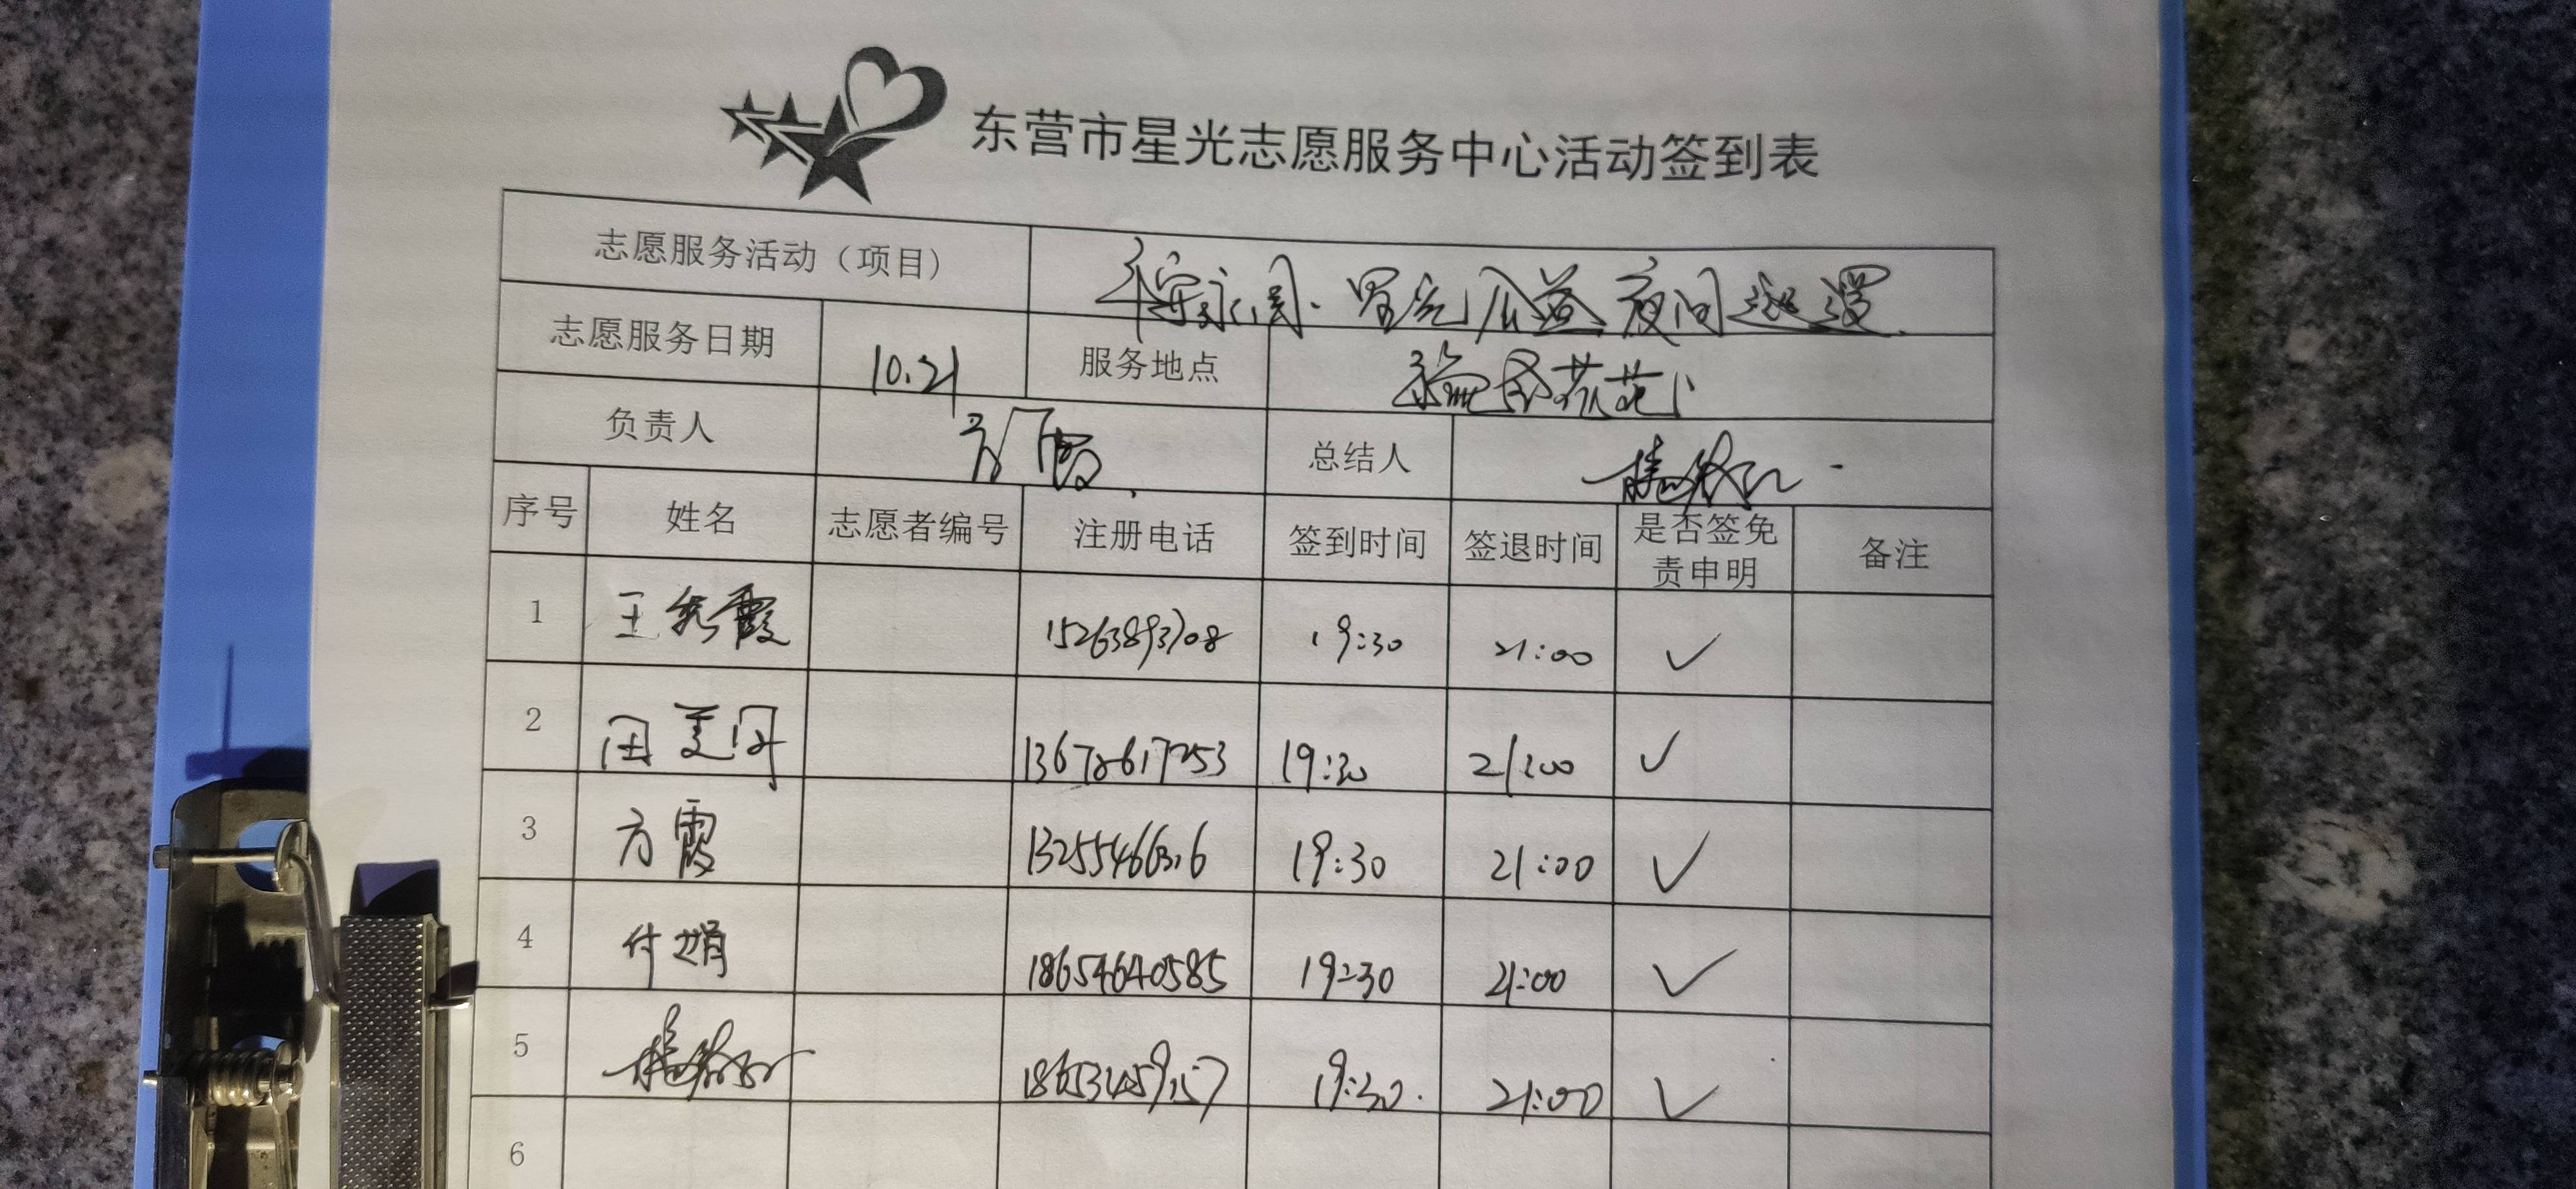 东营市星光志愿服务中心活动签到表
志愿服务活动（项目） 星光公益夜间巡逻
志愿服务日期 10.21 服务地点
负责人 方霞 总结人
序号 姓名 志愿者编号 注册电话 签到时间 签退时间 是否签免责申明 备注
1 王秀霞 15263893708 19:30 21:00 ✓
2 田美丹 13678617253 19:30 21:00 ✓
3 方霞 13255466316 19:30 21:00 ✓
4 付娟 18654640585 19:30 21:00 ✓
5 19:30. 21:00 ✓
6